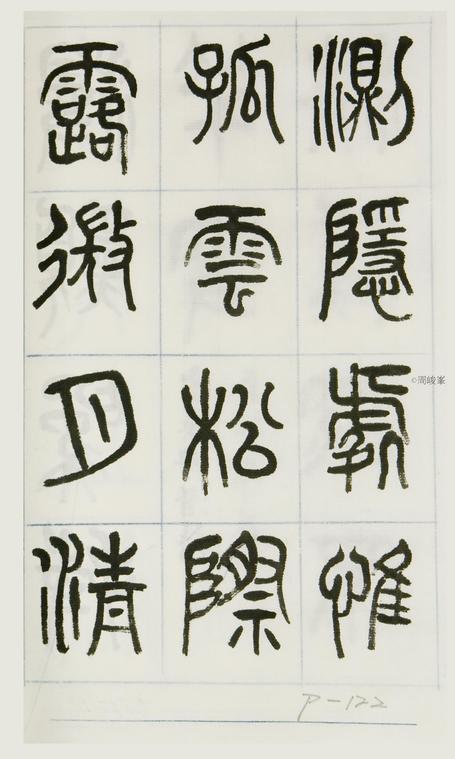 測隱處惟
孤雲松際
露微月清
P-122
©周峻峯